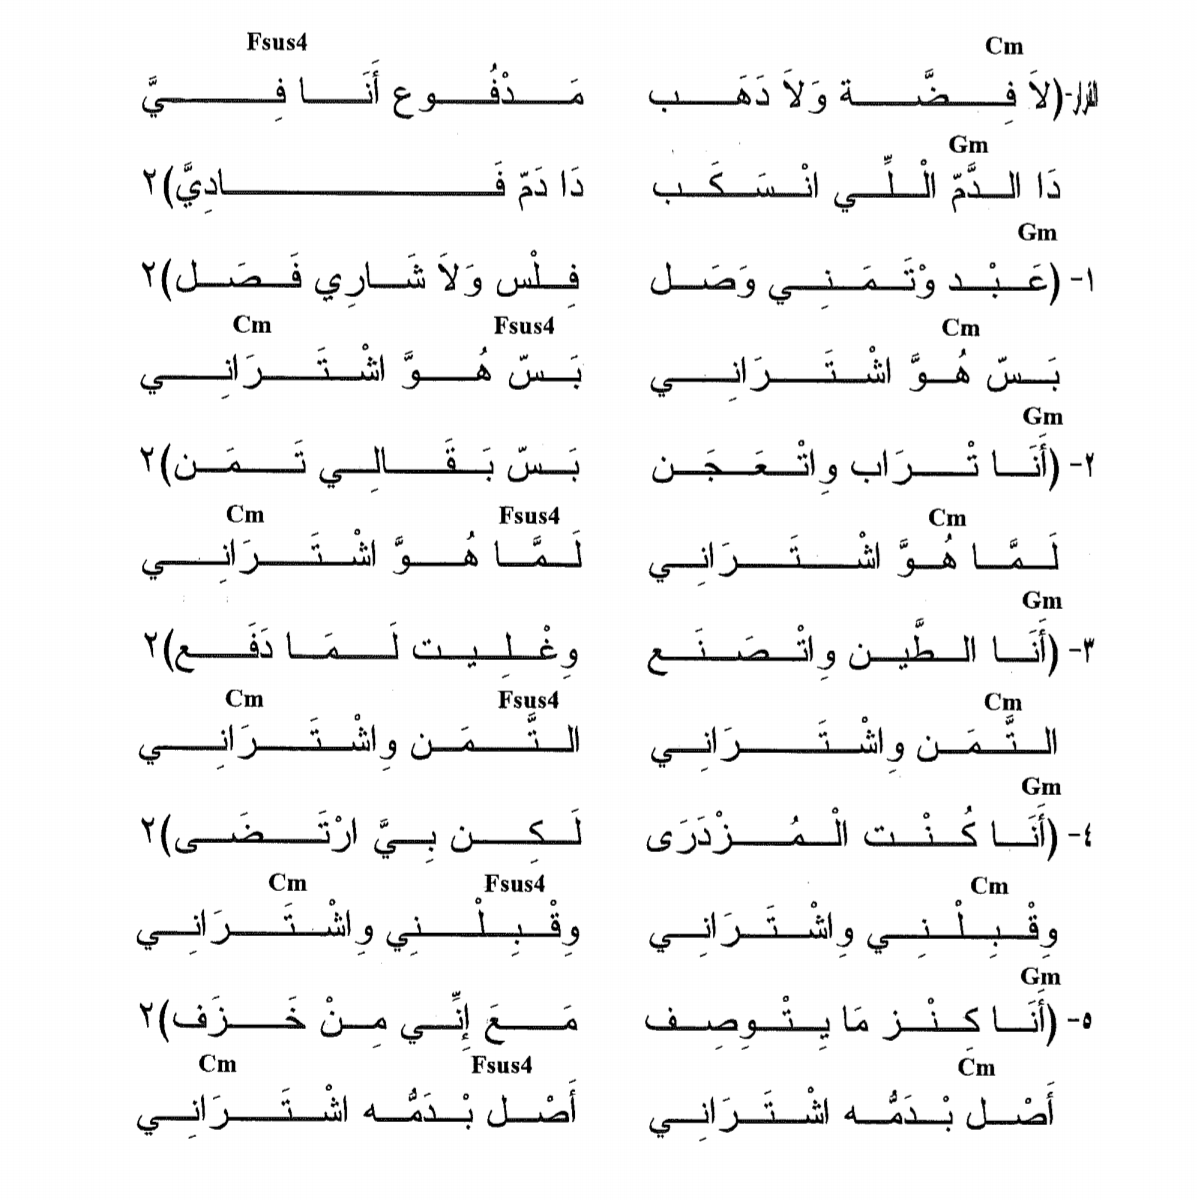 Cm Fsus4
القرار-(لاَ فِضَّة وَلاَ دَهَب مَدْفُوع أَنَا فِيَّ
Gm
دَا الدَّمّ الْلِّي انْسَكَب دَا دَمّ فَادِيَّ)٢
Gm
١- (عَبْد وْتَمَنِي وَصَل فِلْس وَلاَ شَارِي فَصَل)٢
Cm Fsus4 Cm
بَسّ هُوَّ اشْتَرَانِي بَسّ هُوَّ اشْتَرَانِي
Gm
٢- (أَنَا تْرَاب وِاتْعَجَن بَسّ بَقَالِي تَمَن)٢
Cm Fsus4 Cm
لَمَّا هُوَّ اشْتَرَانِي لَمَّا هُوَّ اشْتَرَانِي
Gm
٣- (أَنَا الطِّين وِاتْصَنَع وِغْلِيت لَمَا دَفَع)٢
Cm Fsus4 Cm
التَّمَن وِاشْتَرَانِي التَّمَن وِاشْتَرَانِي
Gm
٤- (أَنَا كُنْت الْمُزْدَرَى لَكِن بِيَّ ارْتَضَى)٢
Cm Fsus4 Cm
وِقْبِلْنِي وِاشْتَرَانِي وِقْبِلْنِي وِاشْتَرَانِي
Gm
٥- (أَنَا كِنْز مَا يِتْوِصِف مَعَ إِنِّي مِنْ خَزَف)٢
Cm Fsus4 Cm
أَصْل بْدَمُّه اشْتَرَانِي أَصْل بْدَمُّه اشْتَرَانِي